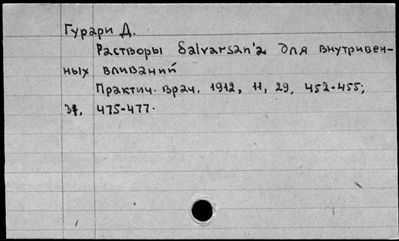 Гурари Д.
Растворы Salvarsan'a для внутривен-
ных вливаний
Практич. врач, 1912, 11, 29, 452-455;
31, 475-477.